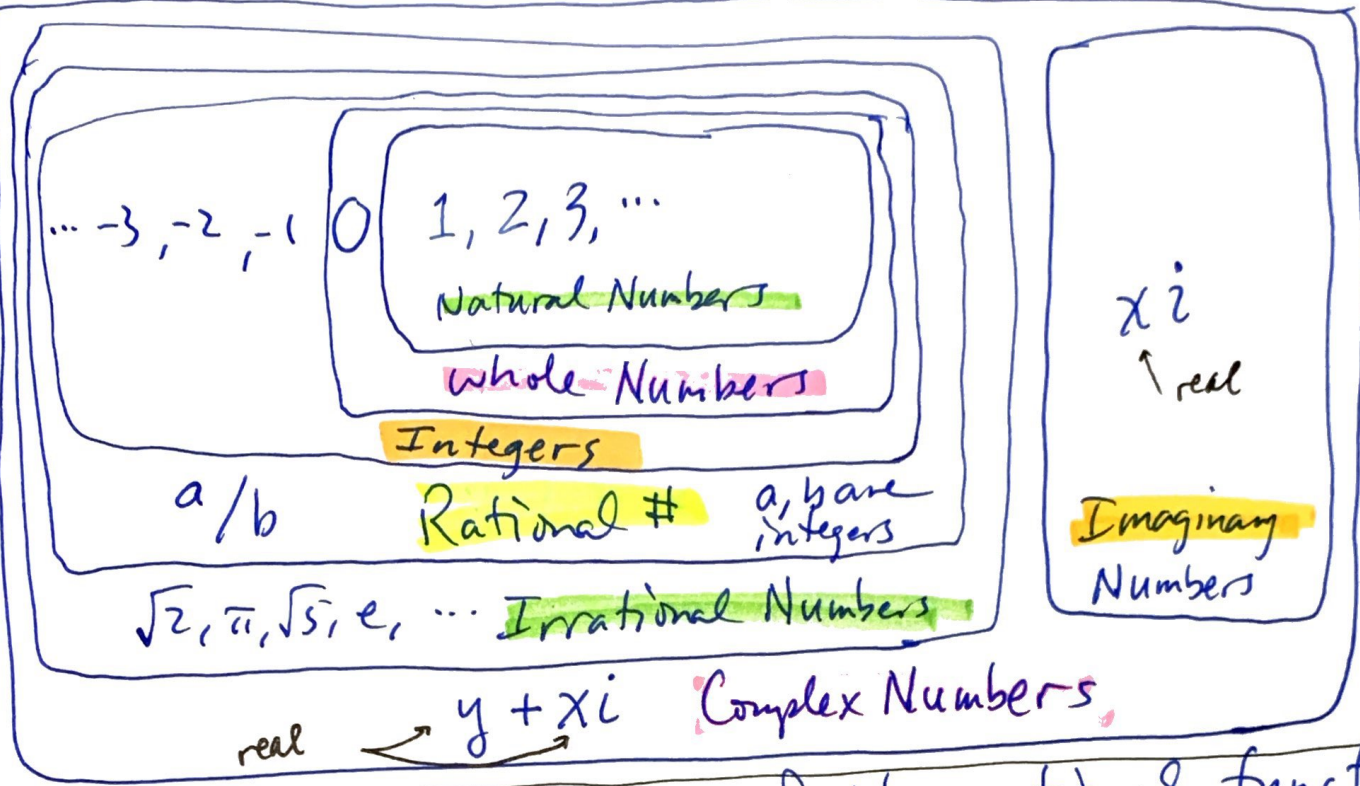 ... -3, -2, -1 0 1, 2, 3, ...
Natural Numbers
whole Numbers
Integers
a/b Rational # a, b are
integers
√2, π, √5, e, ... Irrational Numbers
y + xi Complex Numbers
real
xi
real
Imaginary
Numbers